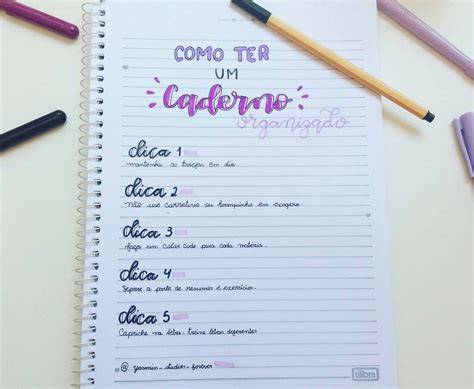 COMO TER
UM
Caderno
organizado
dica 1
mantenha as tarefas em dia.
dica 2
Não use corretivo ou branquinho em exagero.
dica 3
faça um color code para cada matéria.
dica 4
Separe a parte de resumos e exercícios.
dica 5
Capriche na letra, treine letras diferentes
@yasmin_studies_forever
tilibra